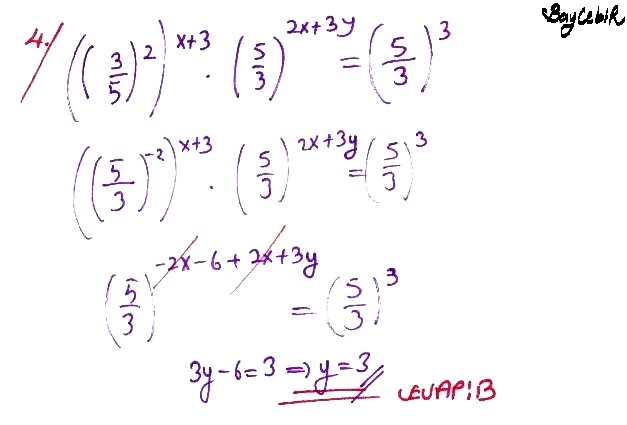 BayCebiR
4./ ((3/5)^2)^(x+3) . (5/3)^(2x+3y) = (5/3)^3
((5/3)^-2)^(x+3) . (5/3)^(2x+3y) = (5/3)^3
(5/3)^(-2x-6+2x+3y) = (5/3)^3
3y-6=3 => y=3
CEVAP:B